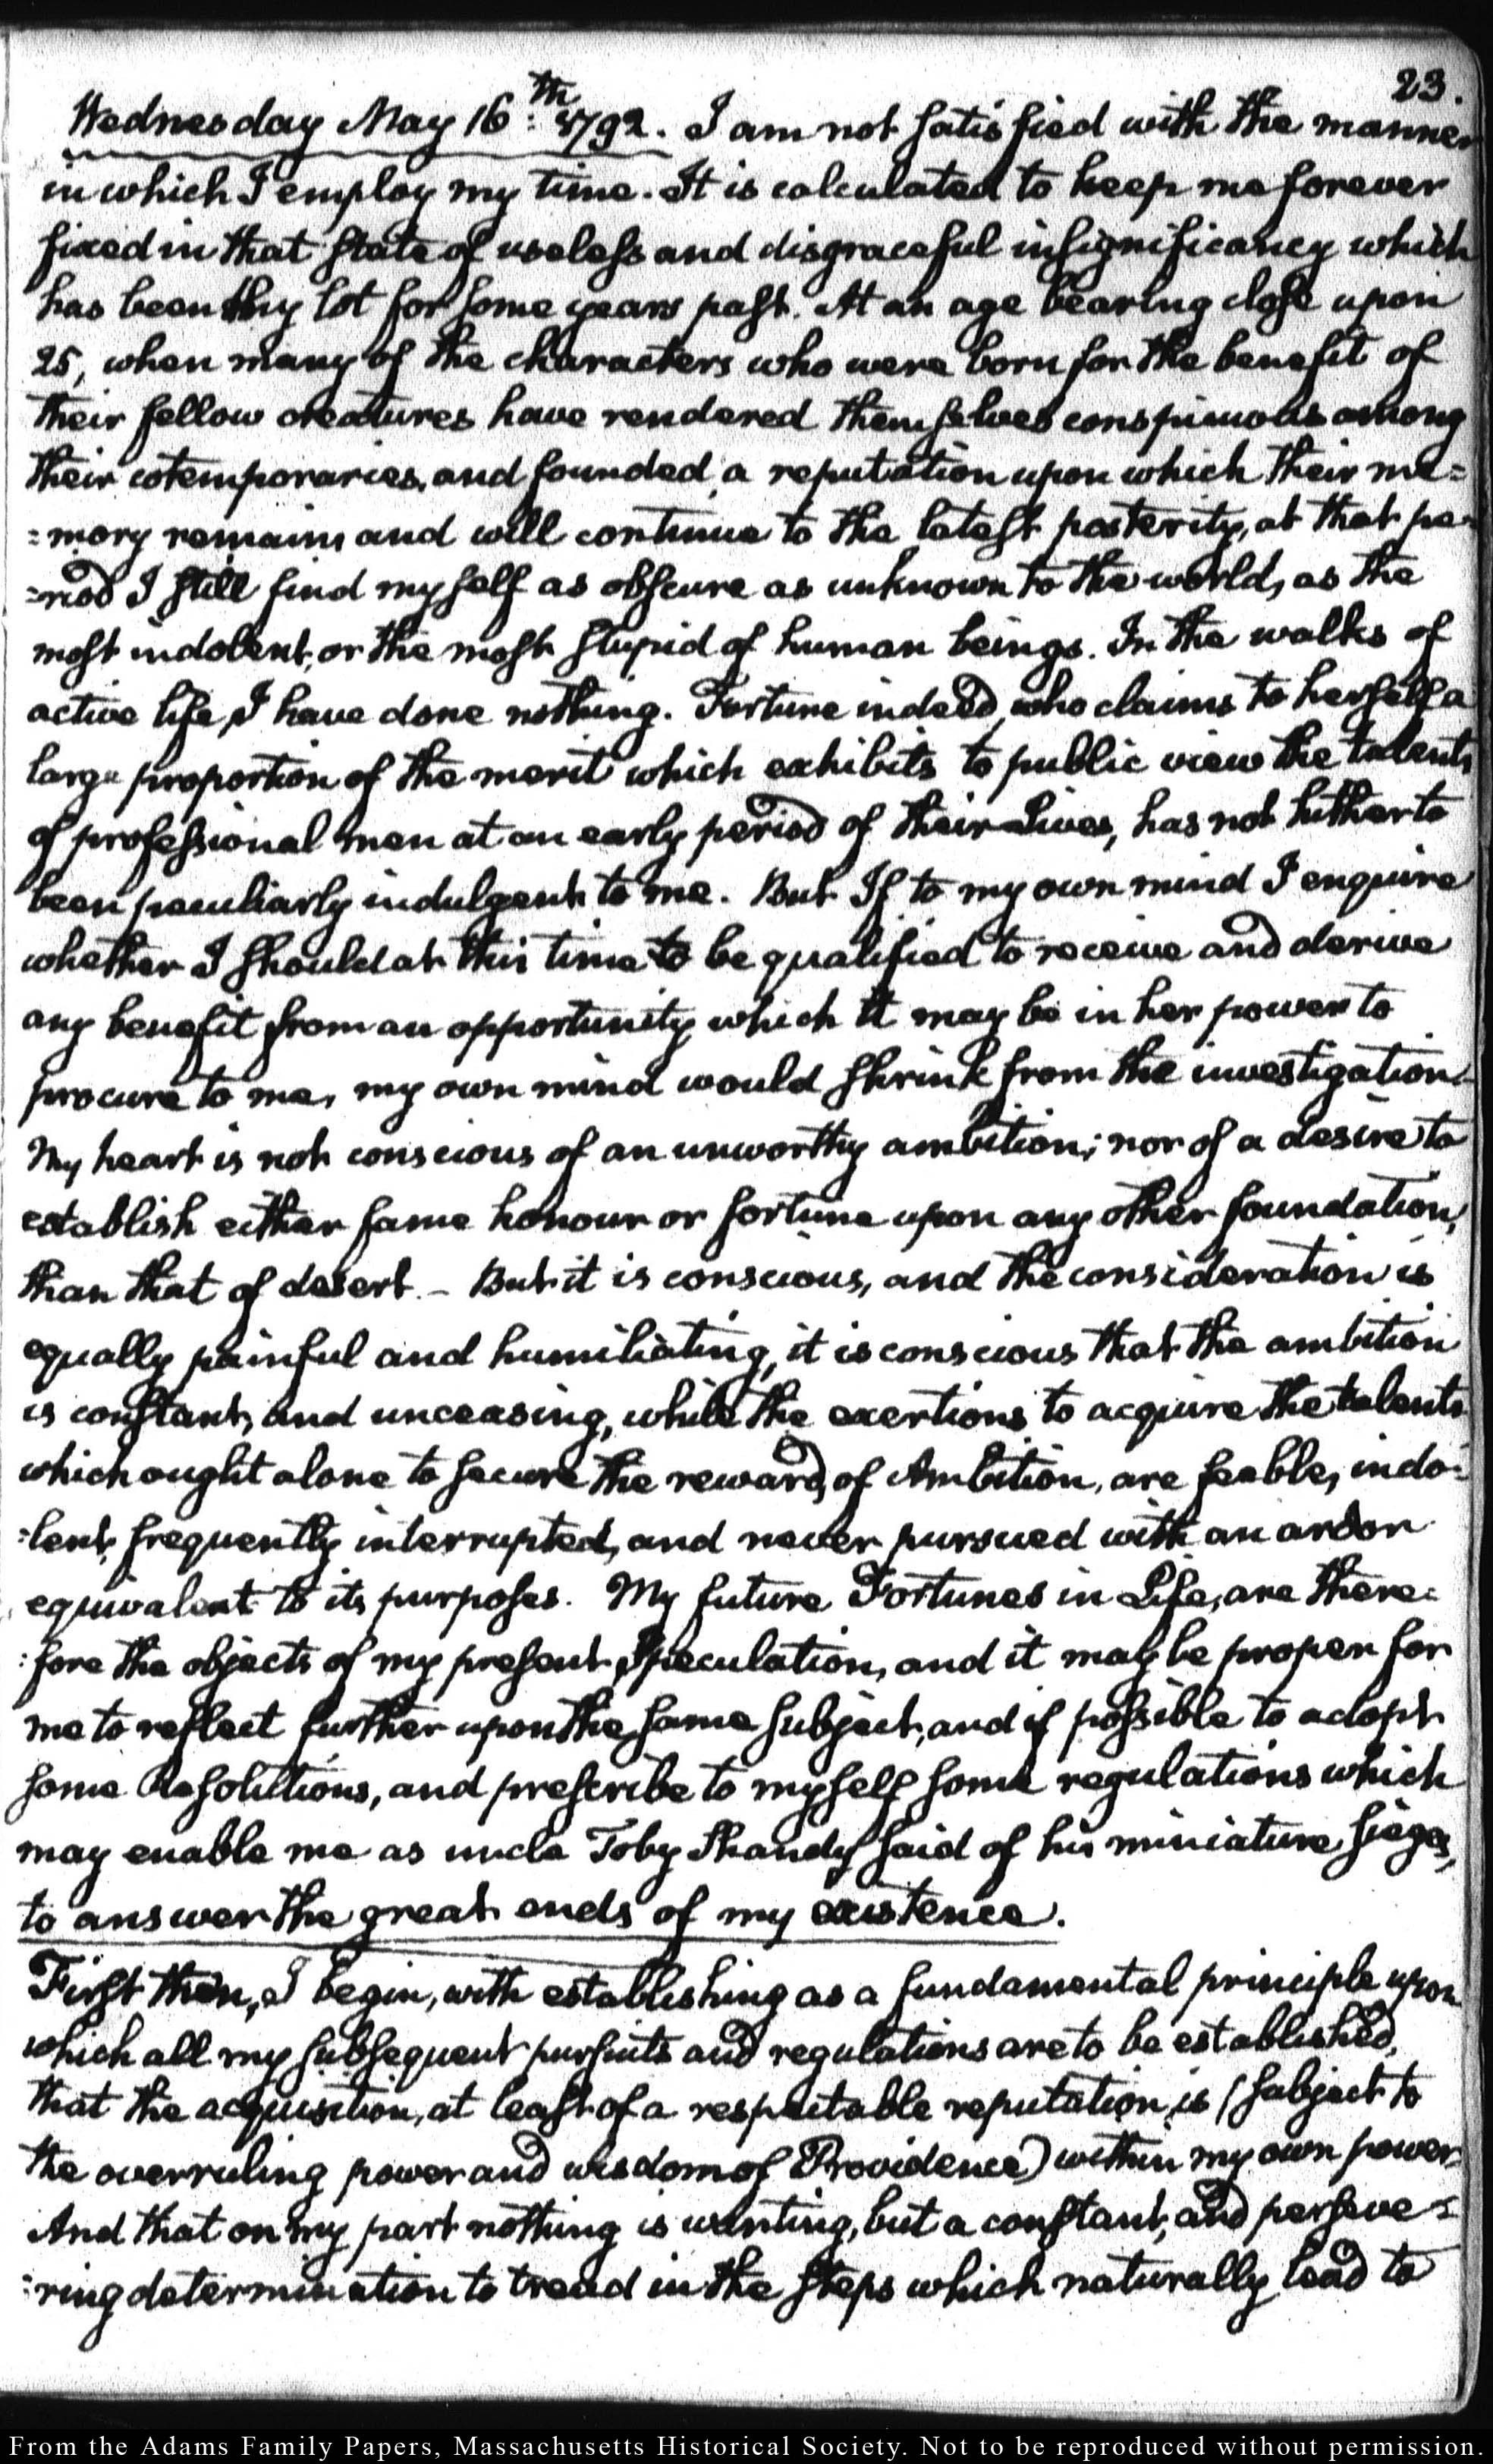 23.
Wednesday May 16:th 1792. I am not satisfied with the manner
in which I employ my time. It is calculated to keep me forever
fixed in that state of useless and disgraceful insignificancy which
has been my lot for some years past. At an age bearing close upon
25, when many of the characters who were born for the benefit of
their fellow creatures have rendered themselves conspicuous among
their cotemporaries, and founded a reputation upon which their me=
=mory remains and will continue to the latest posterity, at that pe=
=riod I still find myself as obscure as unknown to the world, as the
most indolent, or the most stupid of human beings. In the walks of
active life, I have done nothing. Fortune indeed, who claims to herself a
large proportion of the merit which exhibits to public view the talents
of professional men at an early period of their Lives, has not hitherto
been peculiarly indulgent to me. But If to my own mind I enquire
whether I should at this time to be qualified to receive and derive
any benefit from an opportunity which it may be in her power to
procure to me, my own mind would shrink from the investigation.
My heart is not conscious of an unworthy ambition; nor of a desire to
establish either fame honour or fortune upon any other foundation,
than that of desert. – But it is conscious, and the consideration is
equally painful and humiliating, it is conscious that the ambition
is constant, and unceasing, while the exertions to acquire the talents
which ought alone to secure the reward, of Ambition, are feeble, indo=
=lent, frequently interrupted, and never pursued with an ardor
equivalent to its purposes. My future Fortunes in Life, are there=
=fore the objects of my present Speculation, and it may be proper for
me to reflect further upon the same subject, and if possible to adopt
some Resolutions, and prescribe to myself some regulations which
may enable me as uncle Toby Shandy said of his miniature sieges,
to answer the great ends of my existence.
First then, I begin, with establishing as a fundamental principle upon
which all my subsequent pursuits and regulations are to be established,
that the acquisition, at least of a respectable reputation is (subject to
the overruling power and wisdom of Providence) within my own power.
And that on my part nothing is wanting, but a constant, and perseve=
=ring determination to tread in the steps which naturally lead to
From the Adams Family Papers, Massachusetts Historical Society. Not to be reproduced without permission.